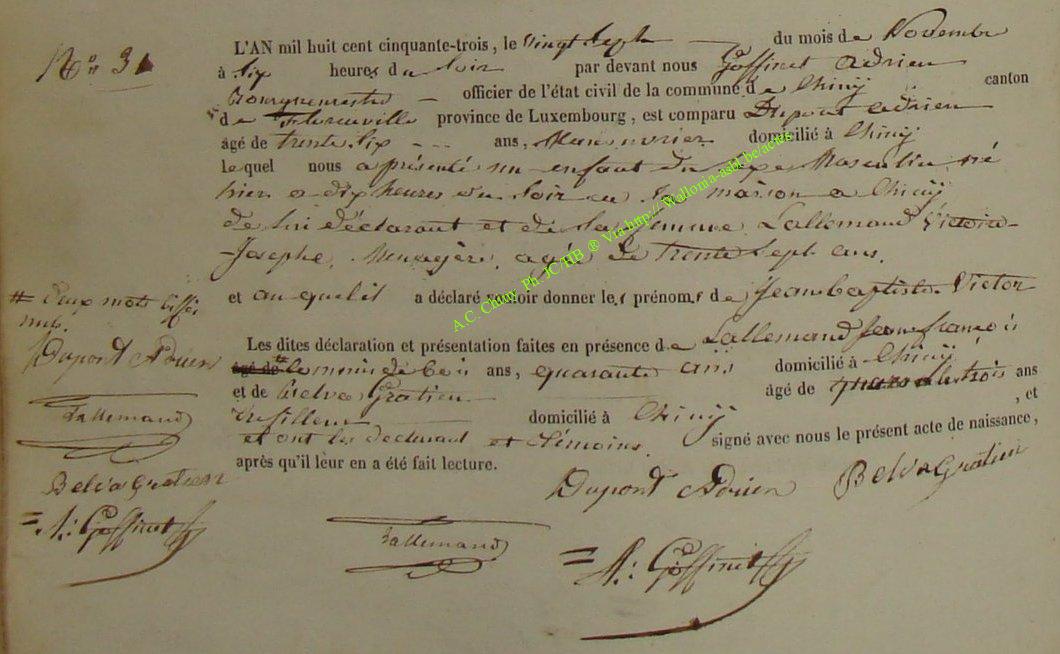 N° 31
L'AN mil huit cent cinquante-trois, le vingt sept du mois de Novembre
à six heures du soir par devant nous Goffinet Adrien
Bourgmestre officier de l'état civil de la commune de Chiny canton
de Florenville province de Luxembourg, est comparu Dupont Adrien
âgé de trente six ans, Manouvrier domicilié à Chiny
lequel nous a présenté un enfant du sexe Masculin né
hier a dix heures du soir en la maison a Chiny
de lui déclarant et de sa femme Lallemand Victoire
Josephe, Menagère, agée de trente sept ans,
et au quel il a déclaré vouloir donner les prénoms de Jean baptiste Victor
Les dites déclaration et présentation faites en présence de Lallemand Jean françois
âgé de ans, quarante ans domicilié à Chiny
et de Belva Gratien âgé de quarante trois ans
domicilié à Chiny , et
et ont les declarant et témoins signé avec nous le présent acte de naissance,
après qu'il leur en a été fait lecture.
# Deux mots biffés
nuls.
Dupont Adrien
Lallemand
Belva Gratien
A: Goffinet
Dupont Adrien Belva Gratien
Lallemand
A: Goffinet
A.C. Chiny Ph. JC/HB ® Via http://Wallonia-asbl.be/actes